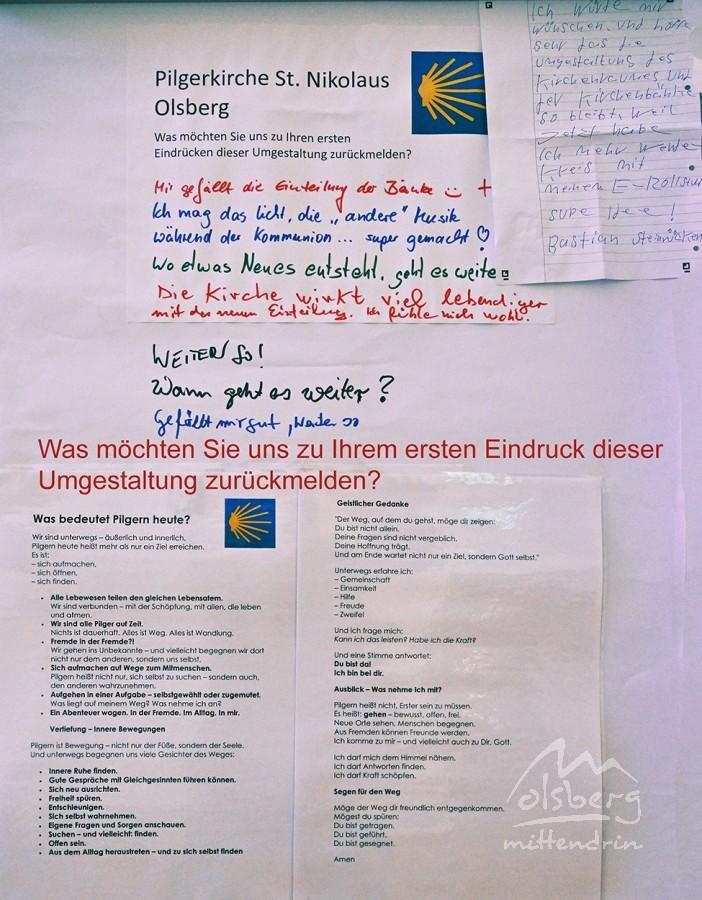 Pilgerkirche St. Nikolaus
Olsberg
Was möchten Sie uns zu Ihren ersten
Eindrücken dieser Umgestaltung zurückmelden?
Mir gefällt die Einteilung der Bänke ☺ +
Ich mag das Licht, die „andere" Musik
während der Kommunion... super gemacht ♡
Wo etwas Neues entsteht, geht es weiter
Die Kirche wirkt viel lebendiger
mit der neuen Einteilung. Ich fühle mich wohl.
WEITER SO!
Wann geht es weiter?
Gefällt mir gut, weiter so
Ich würde mir
wünschen und hoffe
sehr das die
Umgestaltung des
Kirchenraumes und
der Kirchenbänke
so bleibt, weil
jetzt habe
Ich mehr Wende
Kreis mit
meinem E-Rollstuhl
supe Idee!
Bastian
Was möchten Sie uns zu Ihrem ersten Eindruck dieser
Umgestaltung zurückmelden?
Was bedeutet Pilgern heute?
Wir sind unterwegs – äußerlich und innerlich.
Pilgern heute heißt mehr als nur ein Ziel erreichen.
Es ist:
– sich aufmachen,
– sich öffnen,
– sich finden.
• Alle Lebewesen teilen den gleichen Lebensatem.
Wir sind verbunden – mit der Schöpfung, mit allen, die leben
und atmen.
• Wir sind alle Pilger auf Zeit.
Nichts ist dauerhaft. Alles ist Weg. Alles ist Wandlung.
• Fremde in der Fremde?!
Wir gehen ins Unbekannte – und vielleicht begegnen wir dort
nicht nur dem anderen, sondern uns selbst.
• Sich aufmachen auf Wege zum Mitmenschen.
Pilgern heißt nicht nur, sich selbst zu suchen – sondern auch,
den anderen wahrzunehmen.
• Aufgehen in einer Aufgabe – selbstgewählt oder zugemutet.
Was liegt auf meinem Weg? Was nehme ich an?
• Ein Abenteuer wagen. In der Fremde. Im Alltag. In mir.
Vertiefung – Innere Bewegungen
Pilgern ist Bewegung – nicht nur der Füße, sondern der Seele.
Und unterwegs begegnen uns viele Gesichter des Weges:
• Innere Ruhe finden.
• Gute Gespräche mit Gleichgesinnten führen können.
• Sich neu ausrichten.
• Freiheit spüren.
• Entschleunigen.
• Sich selbst wahrnehmen.
• Eigene Fragen und Sorgen anschauen.
• Suchen – und vielleicht: finden.
• Offen sein.
• Aus dem Alltag heraustreten – und zu sich selbst finden
Geistlicher Gedanke
"Der Weg, auf dem du gehst, möge dir zeigen:
Du bist nicht allein.
Deine Fragen sind nicht vergeblich.
Deine Hoffnung trägt.
Und am Ende wartet nicht nur ein Ziel, sondern Gott selbst."
Unterwegs erfahre ich:
– Gemeinschaft
– Einsamkeit
– Hilfe
– Freude
– Zweifel
Und ich frage mich:
Kann ich das leisten? Habe ich die Kraft?
Und eine Stimme antwortet:
Du bist da!
Ich bin bei dir.
Ausblick – Was nehme ich mit?
Pilgern heißt nicht, Erster sein zu müssen.
Es heißt: gehen – bewusst, offen, frei.
Neue Orte sehen, Menschen begegnen.
Aus Fremden können Freunde werden.
Ich komme zu mir – und vielleicht auch zu Dir, Gott.
Ich darf mich dem Himmel nähern.
Ich darf Antworten finden.
Ich darf Kraft schöpfen.
Segen für den Weg
Möge der Weg dir freundlich entgegenkommen.
Mögest du spüren:
Du bist getragen.
Du bist geführt.
Du bist gesegnet.
Amen
olsberg
mittendrin